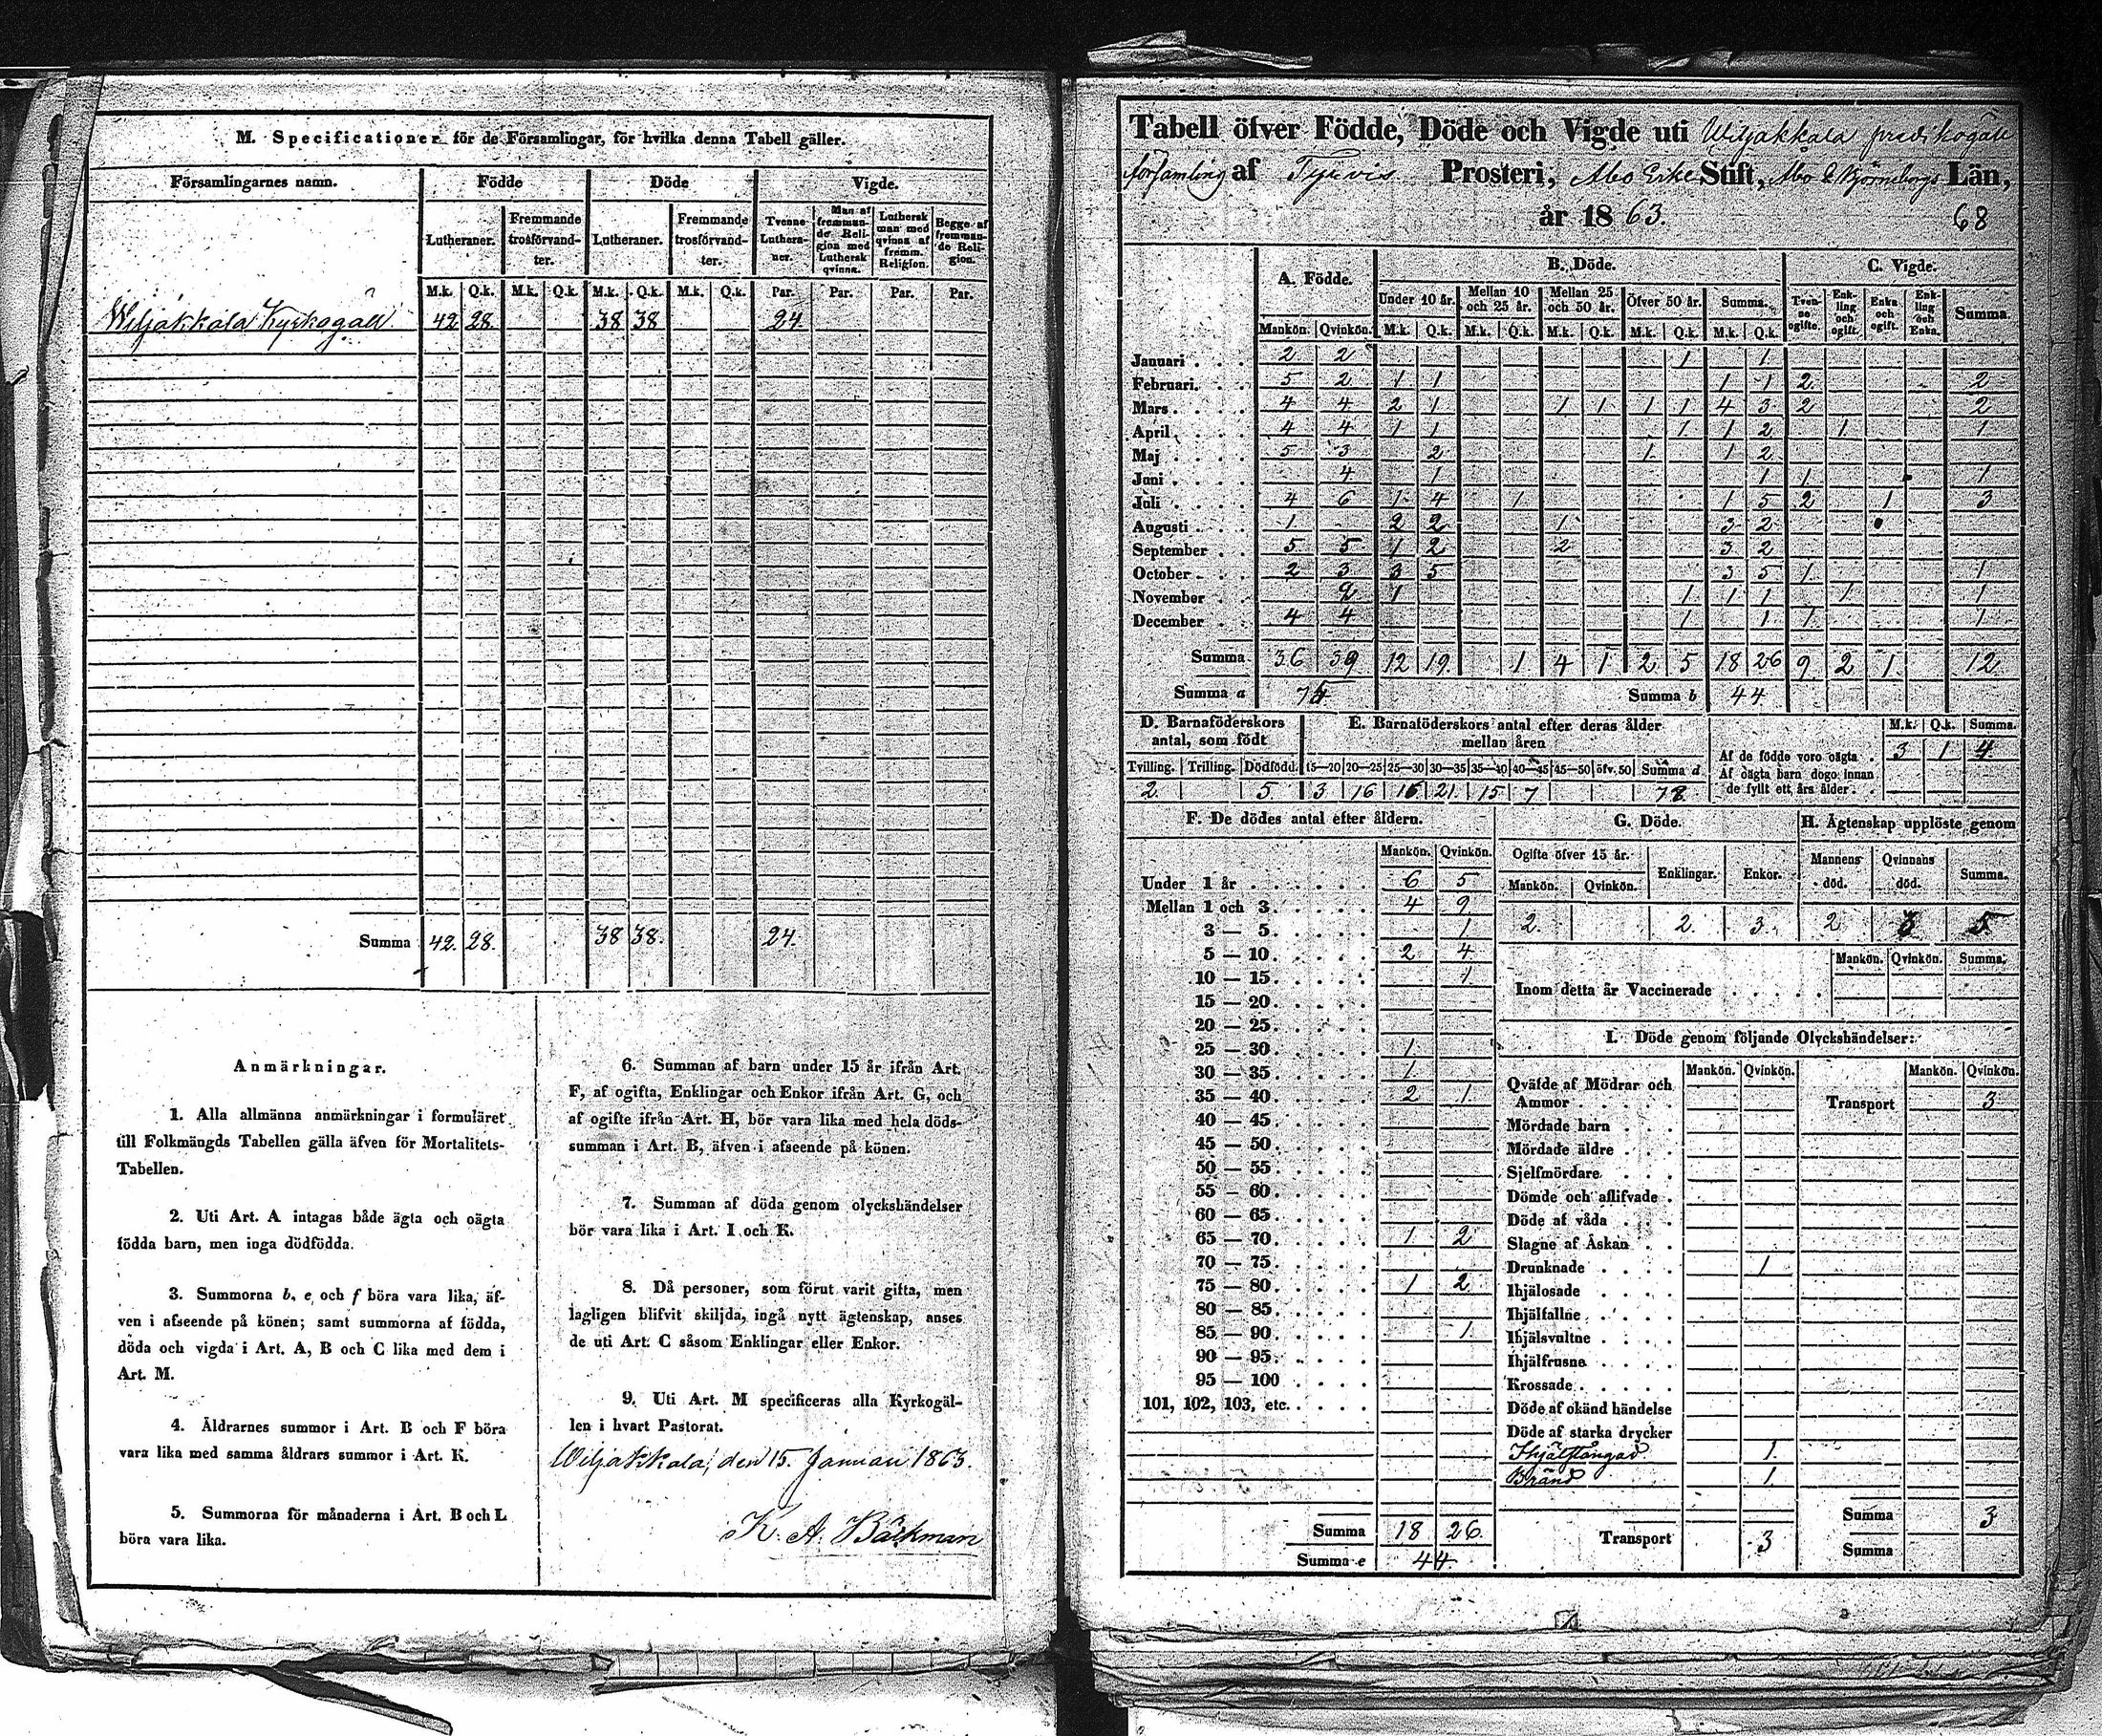 M. Specificationer för de Församlingar, för hvilka denna Tabell gäller.
Församlingarnes namn. Födde Döde Vigde.
Lutheraner. Fremmande trosförvandter. Lutheraner. Fremmande trosförvandter. Tvenne Lutheraner. Man af fremmande Religion med Luthersk qvinna. Luthersk man med qvinna af fremm. Religion. Begge af fremmande Religion.
M.k. Q.k. M.k. Q.k. M.k. Q.k. M.k. Q.k. Par. Par. Par. Par.
Wiljakkala Kyrkogäll 42 28. 38 38 24.
Summa 42. 28. 38 38. 24.
Anmärkningar.
1. Alla allmänna anmärkningar i formuläret
till Folkmängds Tabellen gälla äfven för Mortalitets-
Tabellen.
2. Uti Art. A intagas både ägta och oägta
födda barn, men inga dödfödda.
3. Summorna b, e och f böra vara lika, äf-
ven i afseende på könen; samt summorna af födda,
döda och vigda i Art. A, B och C lika med dem i
Art. M.
4. Äldrarnes summor i Art. B och F böra
vara lika med samma åldrars summor i Art. K.
5. Summorna för månaderna i Art. B och L
böra vara lika.
6. Summan af barn under 15 år ifrån Art.
F, af ogifta, Enklingar och Enkor ifrån Art. G, och
af ogifte ifrån Art. H, bör vara lika med hela döds-
summan i Art. B, äfven i afseende på könen.
7. Summan af döda genom olyckshändelser
bör vara lika i Art. I och K.
8. Då personer, som förut varit gifta, men
lagligen blifvit skiljda, ingå nytt ägtenskap, anses
de uti Art. C såsom Enklingar eller Enkor.
9. Uti Art. M specificeras alla Kyrkogäl-
len i hvart Pastorat.
Wiljakkala, den 15. Januari 1863.
K. A. Bäckman
Tabell öfver Födde, Döde och Vigde uti Wiljakkala predikogäll
församling af Tyrvis Prosteri, Åbo Erke Stift, Åbo & Björneborgs Län,
år 1863.
68
A. Födde. B. Döde. C. Vigde.
Under 10 år. Mellan 10 och 25 år. Mellan 25 och 50 år. Öfver 50 år. Summa. Tvenne ogifte. Enkling och ogift. Enka och ogift. Enkling och Enka. Summa.
Mankön. Qvinkön. M.k. Q.k. M.k. Q.k. M.k. Q.k. M.k. Q.k. M.k. Q.k.
Januari 2 2 1 1
Februari. 5 2 1 1 1 1 2 2
Mars 4 4 2 1 1 1 1 1 4 3 2 2
April 4 4 1 1 1 1 2 1 1
Maj 5 3 2 1 1 2
Juni 4 1 1 1 1
Juli 4 6 1 4 1 1 5 2 1 3
Augusti 1 2 2 1 3 2
September 5 5 1 2 2 3 2
October 2 3 3 5 3 5 1 1
November 2 1 1 1 1 1 1
December 4 4 1 1 1 1
Summa 36 39 12 19 1 4 1 2 5 18 26 9 2 1 12
Summa a 75 Summa b 44
D. Barnaföderskors antal, som födt
Tvilling. Trilling. Dödfödd.
2. 5.
E. Barnaföderskors antal efter deras ålder mellan åren
15—20 20—25 25—30 30—35 35—40 40—45 45—50 öfv. 50 Summa d
3 16 16 21. 15 7 78
M.k. Q.k. Summa.
Af de födde voro oägta 3 1 4
Af oägta barn dogo innan
de fyllt ett års ålder
F. De dödes antal efter åldern.
Mankön. Qvinkön.
Under 1 år 6 5
Mellan 1 och 3 4 9
3 — 5 1
5 — 10 2 4
10 — 15 1
15 — 20
20 — 25
25 — 30 1
30 — 35 1
35 — 40 2 1
40 — 45
45 — 50
50 — 55
55 — 60
60 — 65
65 — 70 1 2
70 — 75
75 — 80 1 2
80 — 85
85 — 90 1
90 — 95
95 — 100
101, 102, 103, etc.
Summa 18 26
Summa e 44.
G. Döde.
Ogifte öfver 15 år. Enklingar. Enkor.
Mankön. Qvinkön.
2. 2. 3.
H. Ägtenskap upplöste genom
Mannens död. Qvinnans död. Summa.
2 3 5
Mankön. Qvinkön. Summa.
Inom detta år Vaccinerade
I. Döde genom följande Olyckshändelser:
Mankön. Qvinkön. Mankön. Qvinkön.
Qväfde af Mödrar och
Ammor Transport 3
Mördade barn
Mördade äldre
Sjelfmördare
Dömde och aflifvade
Döde af våda
Slagne af Åskan
Drunknade 1
Ihjälosade
Ihjälfallne
Ihjälsvultne
Ihjälfrusne
Krossade
Döde af okänd händelse
Döde af starka drycker
Ihjälstångad 1.
Bränd 1.
Transport 3 Summa 3
Summa